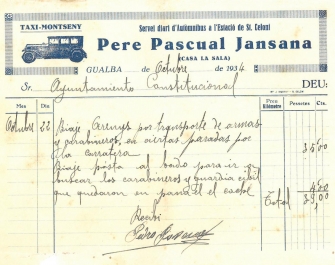 TAXI-MONTSENY
Servei diari d'Autòmnibus a l'Estació de St. Celoni
Pere Pascual Jansana
(CASA LA SALA)
GUALBA de Octubre de 1934
Sr. Ayuntamiento Constitucional DEU:
Mes Dia Preu Kilòmetre Pessetes Cts.
Octubre 22 Viaje Arenys por transporte de armas
y carabineros, en ciertas paradas por
la carretera 35'00
Viaje hasta al bado para ir a
buscar los carabineros y guardia civil
que quedaron en 4'00
Total 39'00
Recibí
Pedro Pascual